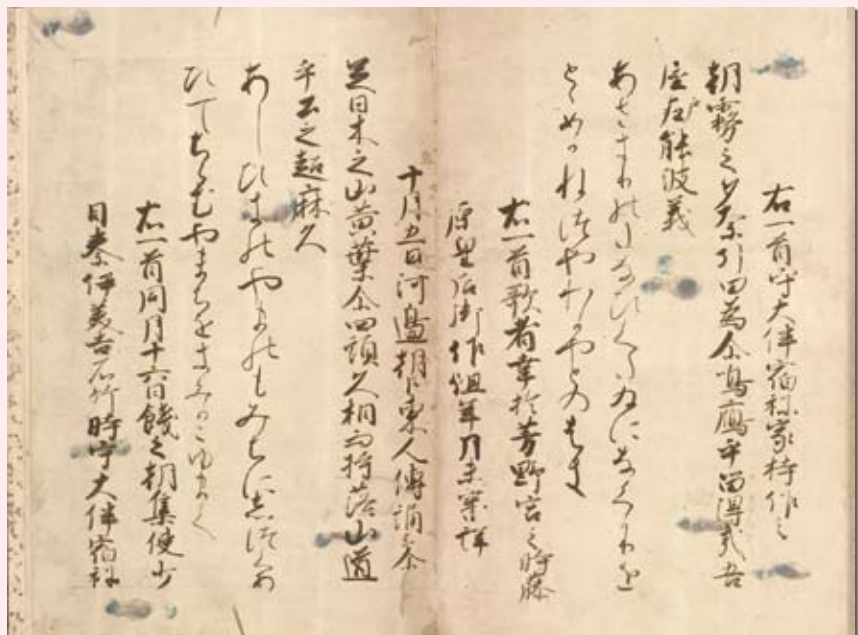 右一首守大伴宿祢家持作之
朝霧之多奈引田為尓鳴鴈乎留得哉吾
屋戸能波義
あさきりのたなひくたゐになくかりを
わかやとのはき
右一首歌者幸於芳野宮之時藤
原皇后御作但年月未審詳
十月五日河邊朝臣東人傳誦云尓
足日木之山黄葉尓四頭久相而将落山道
乎公之超麻久
あしひきのやまのもみちにしつくあ
ひてちらむやまちをきみかこゆまく
右一首同月十六日餞之朝集使少
目秦伊美吉石竹時守大伴宿祢